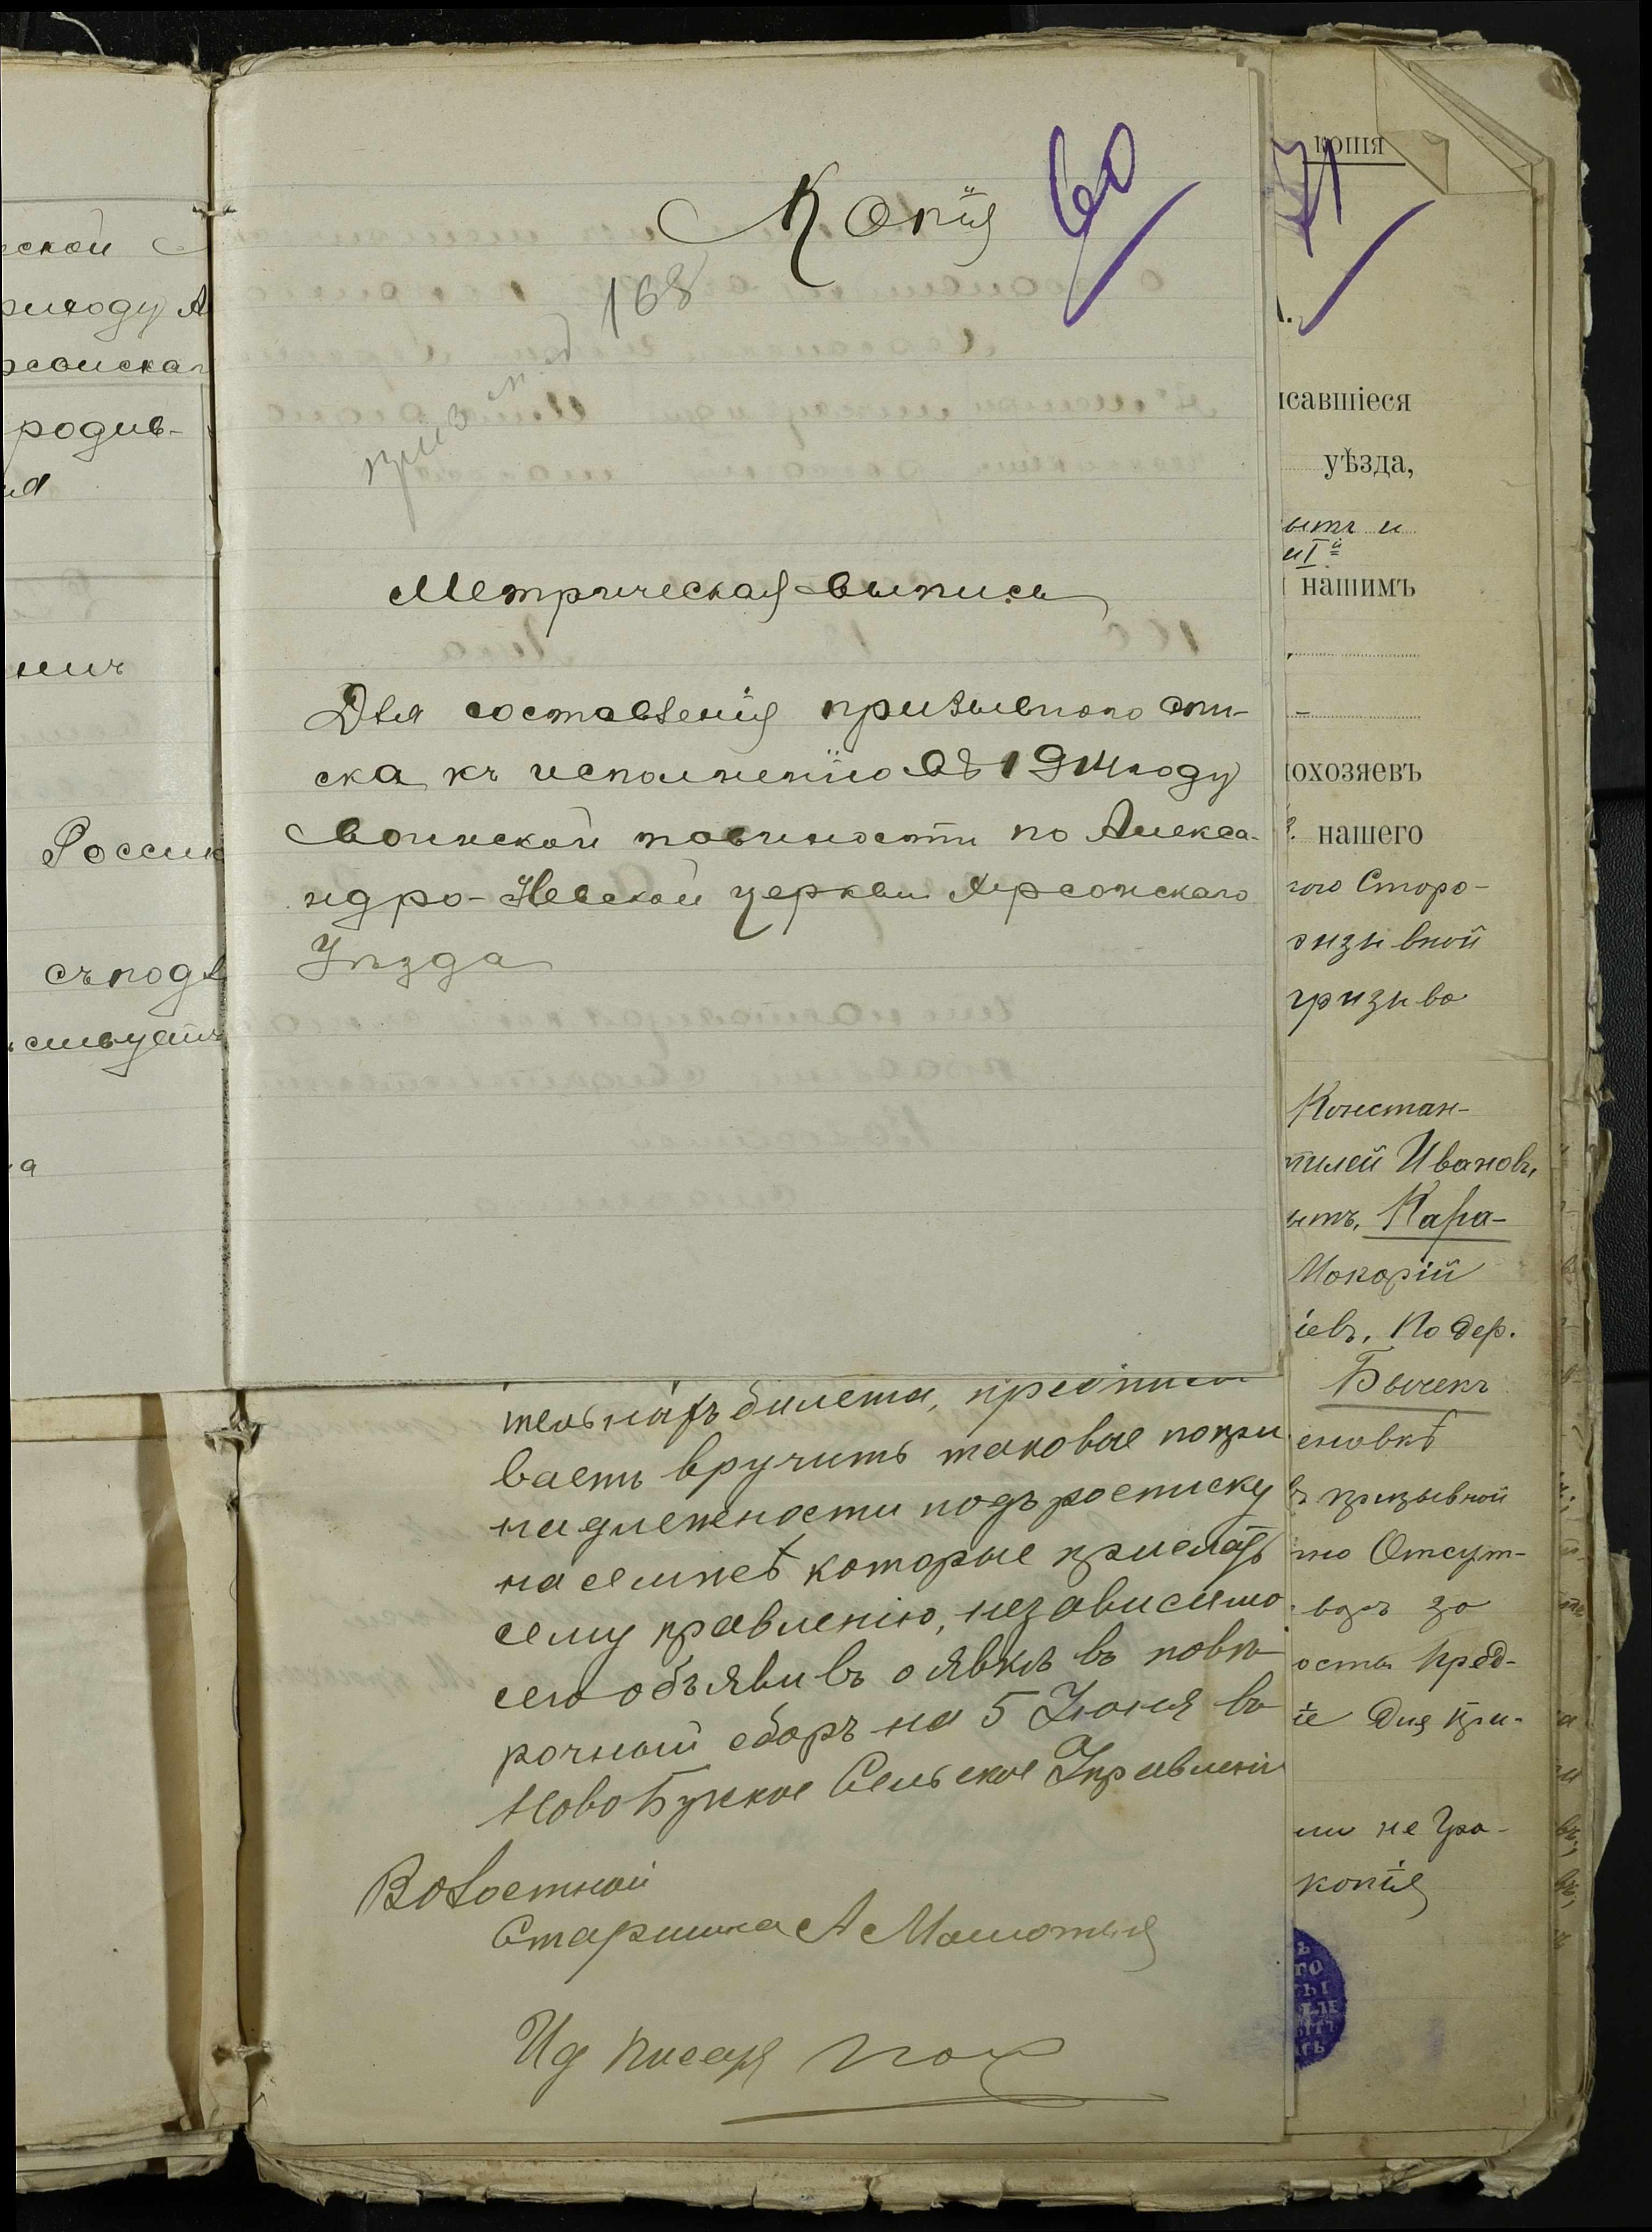 ской
риходу А
родив-
Россик
съподл
Копія
60
168
Метрическая выпись
Для составленія призывного спи-
ска къ исполненію въ 1914 году
воинской повинности по Алекса-
ндро-Невской церкви Херсонскаго
Уѣзда
тельнахъ билета, предписы
ваетъ вручить таковые попри
надлежности подъ росписку
на семже которые прислать
сему правленію, независимо
сего объявивъ о явкѣ въ повѣ
рочный сборъ на 5 Іюня въ
Ново Бугское Сельское Управлені
Волостной
Старшина А
Ид Писаря
копія
71
исавшіеся
уѣзда,
ытъ и
нашимъ
охозяевъ
нашего
того Сторо-
ризывной
призыва
Констан-
тилей Ивановъ,
ытъ, Кара-
Макарій
іевъ, По дер.
Бычекъ
еновкѣ
въ призывной
но Отсут-
за
ость Пред-
іе Для При-
ли не Гра-
копія